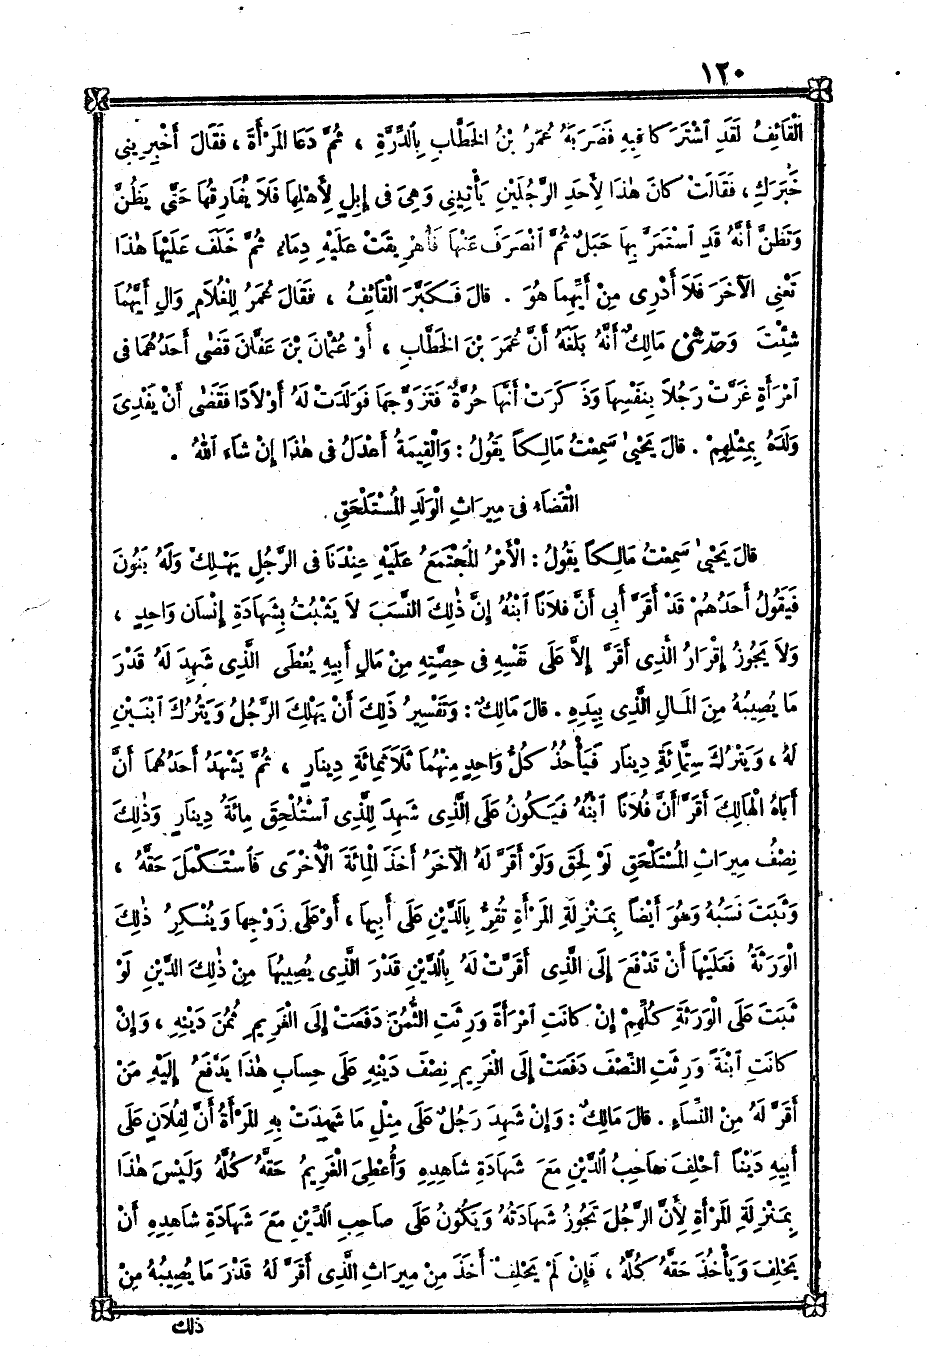 ١٢٠
الْقَائِفُ لَقَدِ اشْتَرَكَا فِيهِ فَضَرَبَهُ عُمَرُ بْنُ الخَطَّابِ بِالدِّرَّةِ ، ثُمَّ دَعَا المَرْأَةَ ، فَقَالَ أَخْبِرِينِي
خَبَرَكِ ، فَقَالَتْ كانَ هٰذَا لِأَحَدِ الرَّجُلَيْنِ يَأْتِينِي وَهِيَ فى إِبِلٍ لِأَهْلِهَا فَلَا يُفَارِقُهَا حَتَّى يَظُنَّ
وَتَظُنَّ أَنَّهُ قَدِ اسْتَمَرَّ بِهَا حَبَلٌ ثُمَّ انْصَرَفَ عَنْهَا فَأُهْرِيقَتْ عَلَيْهِ دِمَاءٌ ثُمَّ خَلَفَ عَلَيْهَا هٰذَا
تَعْنِى الآخَرَ فَلَا أَدْرِى مِنْ أَيِّهِمَا هُوَ . قالَ فَكَبَّرَ الْقَائِفُ ، فَقَالَ عُمَرُ لِلْغُلَامِ وَالِ أَيَّهُمَا
شِئْتَ وَحَدَّثَنِى مَالِكٌ أَنَّهُ بَلَغَهُ أَنَّ عُمَرَ بْنَ الخَطَّابِ ، أَوْ عُثْمَانَ بْنَ عَفَّانَ قَضَى أَحَدُهُمَا فى
امْرَأَةٍ غَرَّتْ رَجُلاً بِنَفْسِهَا وَذَكَرَتْ أَنَّهَا حُرَّةٌ فَتَزَوَّجَهَا فَوَلَدَتْ لَهُ أَوْلَادًا فَقَضَى أَنْ يَفْدِىَ
وَلَدَهُ بِمِثْلِهِمْ . قالَ يَحْيىٰ سَمِعْتُ مَالِكاً يَقُولُ : وَالْقِيمَةُ أَعْدَلُ فى هٰذَا إِنْ شَاءَ اللّٰهُ .
الْقَضَاءُ فى مِيرَاثِ الْوَلَدِ المُسْتَلْحَقِ
قالَ يَحْيىٰ سَمِعْتُ مَالِكاً يَقُولُ : الْأَمْرُ المُجْتَمَعُ عَلَيْهِ عِنْدَنَا فى الرَّجُلِ يَهْلِكُ وَلَهُ بَنُونَ
فَيَقُولُ أَحَدُهُمْ قَدْ أَقَرَّ أَبِى أَنَّ فُلَاناً ابْنُهُ إِنَّ ذٰلِكَ النَّسَبَ لَا يَثْبُتُ بِشَهَادَةِ إِنْسَانٍ وَاحِدٍ ،
وَلَا يَجُوزُ إِقْرَارُ الَّذِى أَقَرَّ إِلاَّ عَلَى نَفْسِهِ فى حِصَّتِهِ مِنْ مَالِ أَبِيهِ يُعْطَى الَّذِى شَهِدَ لَهُ قَدْرَ
مَا يُصِيبُهُ مِنَ المَالِ الَّذِى بِيَدِهِ . قالَ مَالِكٌ : وَتَفْسِيرُ ذٰلِكَ أَنْ يَهْلِكَ الرَّجُلُ وَيَتْرُكَ ابْنَيْنِ
لَهُ ، وَيَتْرُكَ سِتَّمِائَةِ دِينَارٍ فَيَأْخُذُ كُلُّ وَاحِدٍ مِنْهُمَا ثَلَاثَمِائَةِ دِينَارٍ ، ثُمَّ يَشْهَدُ أَحَدُهُمَا أَنَّ
أَبَاهُ الْهَالِكَ أَقَرَّ أَنَّ فُلَاناً ابْنُهُ فَيَكُونُ عَلَى الَّذِى شَهِدَ لِلَّذِى اسْتُلْحِقَ مِائَةُ دِينَارٍ وَذٰلِكَ
نِصْفُ مِيرَاثِ المُسْتَلْحَقِ لَوْ لَحِقَ وَلَوْ أَقَرَّ لَهُ الآخَرُ أَخَذَ الْمِائَةَ الْأُخْرَى فَاسْتَكْمَلَ حَقَّهُ ،
وَثَبَتَ نَسَبُهُ وَهُوَ أَيْضاً بِمَنْزِلَةِ المَرْأَةِ تُقِرُّ بِالدَّيْنِ عَلَى أَبِيهَا ، أَوْ عَلَى زَوْجِهَا وَيُنْكِرُ ذٰلِكَ
الْوَرَثَةُ فَعَلَيْهَا أَنْ تَدْفَعَ إِلَى الَّذِى أَقَرَّتْ لَهُ بِالدَّيْنِ قَدْرَ الَّذِى يُصِيبُهَا مِنْ ذٰلِكَ الدَّيْنِ لَوْ
ثَبَتَ عَلَى الْوَرَثَةِ كُلِّهِمْ إِنْ كانَتِ امْرَأَةً وَرِثَتِ الثُّمُنَ دَفَعَتْ إِلَى الْغَرِيمِ ثُمُنَ دَيْنِهِ ، وَإِنْ
كانَتِ ابْنَةً وَرِثَتِ النِّصْفَ دَفَعَتْ إِلَى الْغَرِيمِ نِصْفَ دَيْنِهِ عَلَى حِسَابِ هٰذَا يَدْفَعُ إِلَيْهِ مَنْ
أَقَرَّ لَهُ مِنَ النِّسَاءِ . قالَ مَالِكٌ : وَإِنْ شَهِدَ رَجُلٌ عَلَى مِثْلِ مَا شَهِدَتْ بِهِ المَرْأَةُ أَنَّ لِفُلَانٍ عَلَى
أَبِيهِ دَيْناً أُحْلِفَ صَاحِبُ الدَّيْنِ مَعَ شَهَادَةِ شَاهِدِهِ وَأُعْطِىَ الْغَرِيمُ حَقَّهُ كُلَّهُ وَلَيْسَ هٰذَا
بِمَنْزِلَةِ المَرْأَةِ لِأَنَّ الرَّجُلَ تَجُوزُ شَهَادَتُهُ وَيَكُونُ عَلَى صَاحِبِ الدَّيْنِ مَعَ شَهَادَةِ شَاهِدِهِ أَنْ
يَحْلِفَ وَيَأْخُذَ حَقَّهُ كُلَّهُ ، فَإِنْ لَمْ يَحْلِفْ أَخَذَ مِنْ مِيرَاثِ الَّذِى أَقَرَّ لَهُ قَدْرَ مَا يُصِيبُهُ مِنْ
ذلك